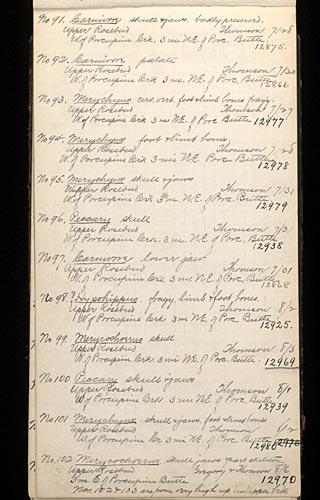 No 91. Carnivore skull & jaws. badly preserv.
Upper Rosebud Thomson 7/28
W of Porcupine Crk. 3 mi. N.E. of Porc. Butte
12875.
No 92. Carnivore palate
Upper Rosebud Thomson 7/30
W of Porcupine Crk. 3 mi. N.E. of Porc. Butte
12866
No 93. Merychyus cerv. vert. foot & limb bones frag.
Upper Rosebud Thomson 7/27
W of Porcupine Crk 3 mi. N.E. of Porc. Butte
12977
No 94. Merychyus foot & limb bones.
Upper Rosebud Thomson 7/28
W of Porcupine Crk 3 mi N.E. of Porc. Butte
12978
No 95. Merychyus skull & jaws
Upper Rosebud Thomson 7/31
W of Porcupine Crk 3 mi. N.E. of Porc. Butte
12979
No 96. Peccary skull
Upper Rosebud Thomson 7/31
W of Porcupine Crk. 3 mi. N.E. of Porc. Butte
12938
No 97. Carnivore lower jaw
Upper Rosebud Thomson 7/01
W of Porcupine Crk 3 mi. N.E. of Porc. Butte
12868
No 98. ? Hypohippus. frag. limb & foot bones.
Upper Rosebud Thomson 8/2
W of Porcupine Crk 3 mi. N.E. of Porc. Butte
12925.
No 99. Merycochoerus skull
Upper Rosebud Thomson 8/3
W of Porcupine Crk 3 mi N.E. of Porc. Butte.
12969
No 100 Peccary skull & jaws
Upper Rosebud Thomson 8/1
W of Porcupine Crk 3 mi. N.E. of Porc. Butte
12939
No 101 Merychyus skull & jaws, foot & limb bones
Upper Rosebud Thomson 8/2
W of Porcupine Crk 3 mi. N.E. of Porc. Butte
12980
No. 102 Merycochoerus Skull jaws part skeleton
Upper Rosebud Gregory & Thomson 8/6
5 m E of Porcupine Butte 12970
Nos. 102 & 133 are from very high up in Upper beds